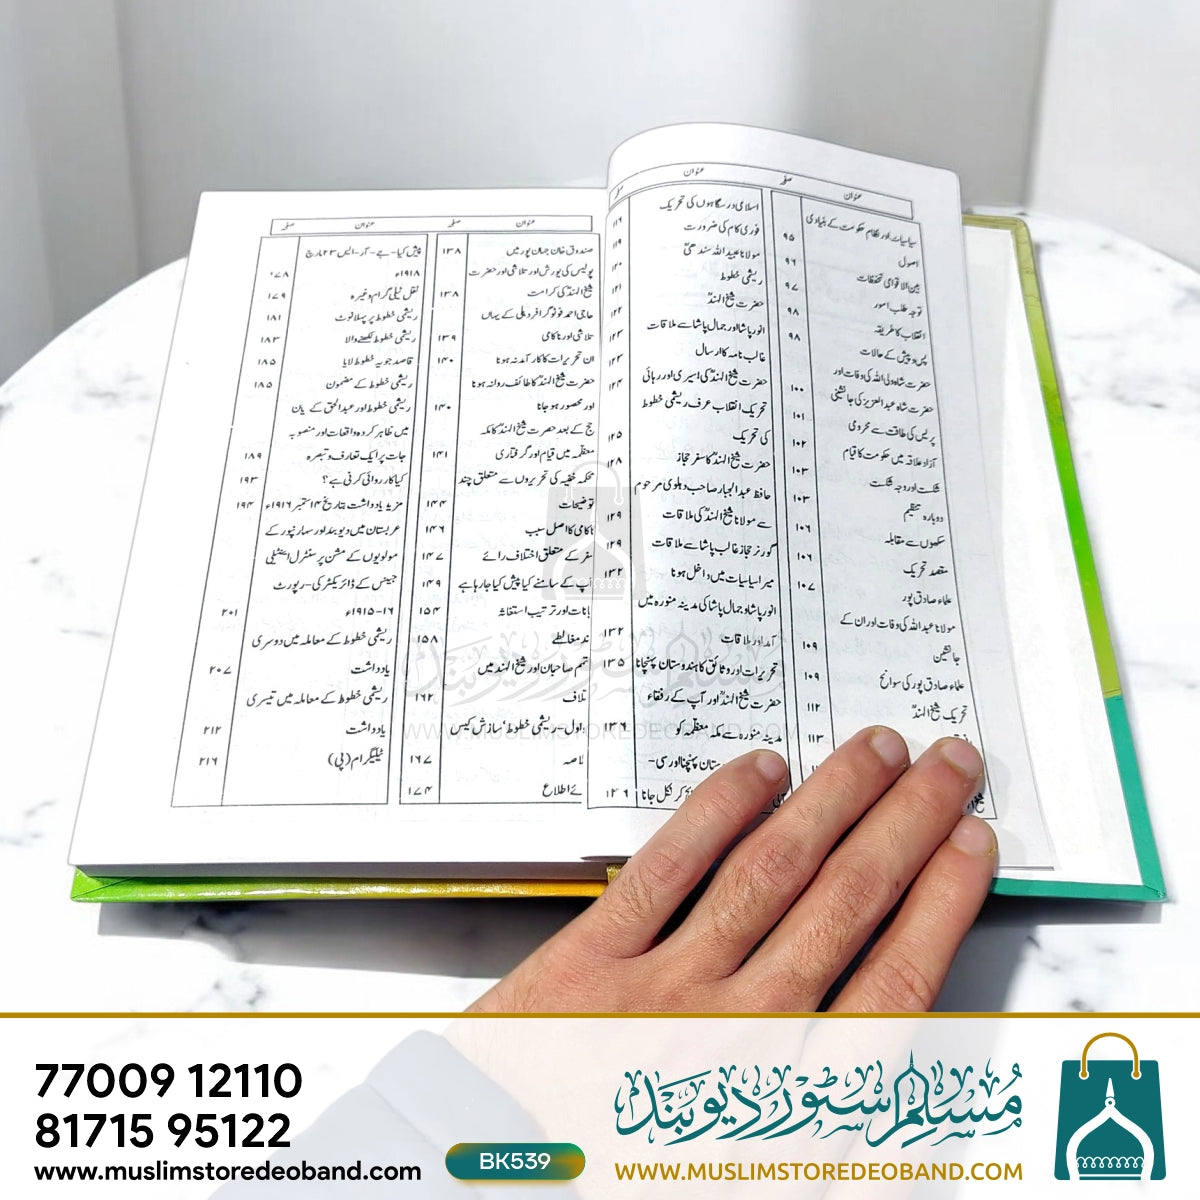 عنوان صفحہ عنوان صفحہ
سیاسیات اور نظام حکومت کے بنیادی
اصول ۹۵
بین الاقوامی تحفظات ۹۶
توجہ طلب امور ۹۷
انقلاب کا طریقہ ۹۸
پس و پیش کے حالات ۹۸
حضرت شاہ ولی اللہ کی وفات اور
حضرت شاہ عبدالعزیز کی جانشینی ۱۰۰
پریس کی طاقت سے محرومی ۱۰۱
آزاد علاقہ میں حکومت کا قیام ۱۰۲
شکست اور وجہ شکست ۱۰۳
دوبارہ تنظیم ۱۰۳
سکھوں سے مقابلہ ۱۰۶
مقصد تحریک ۱۰۶
علماء صادق پور ۱۰۷
مولانا عبداللہ کی وفات اور ان کے
جانشین ۱۰۹
علماء صادق پور کی سوانح ۱۰۹
تحریک شیخ الہندؒ ۱۱۲
۱۱۳
اسلامی درسگاہوں کی تحریک ۱۱۶
فوری کام کی ضرورت ۱۱۹
مولانا عبیداللہ سندھیؒ ۱۲۰
ریشمی خطوط ۱۲۱
حضرت شیخ الہندؒ ۱۲۲
انور پاشا اور جمال پاشا سے ملاقات ۱۲۳
غالب نامہ کا ارسال ۱۲۳
حضرت شیخ الہندؒ کی اسیری اور رہائی ۱۲۴
تحریک انقلاب عرف ریشمی خطوط
کی تحریک ۱۲۵
حضرت شیخ الہندؒ کا سفر حجاز ۱۲۸
حافظ عبدالجبار صاحب دہلوی مرحوم
سے مولانا شیخ الہندؒ کی ملاقات ۱۲۹
گورنر حجاز غالب پاشا سے ملاقات ۱۲۹
میرا سیاسیات میں داخل ہونا ۱۳۲
انور پاشا و جمال پاشا کی مدینہ منورہ میں
آمد اور ملاقات ۱۳۲
تحریرات اور وثائق کا ہندوستان پہنچانا ۱۳۵
حضرت شیخ الہندؒ اور آپ کے رفقاء
مدینہ منورہ سے مکہ معظمہ کو ۱۳۶
ستان پہنچنا اور سی-
کر نکل جانا ۱۳۶
عنوان صفحہ عنوان صفحہ
صندوق خان جہان پور میں ۱۳۸
پولیس کی یورش اور تلاشی اور حضرت
شیخ الہندؒ کی کرامت ۱۳۸
حاجی احمد فوٹو گرافر دہلی کے یہاں
تلاشی اور ناکامی ۱۳۹
ان تحریرات کا کار آمد نہ ہونا ۱۴۰
حضرت شیخ الہندؒ کا طائف روانہ ہونا
اور محصور ہو جانا ۱۴۰
حج کے بعد حضرت شیخ الہندؒ کا مکہ
معظمہ میں قیام اور گرفتاری ۱۴۱
محکمہ خفیہ کی تحریروں سے متعلق چند
توضیحات ۱۴۴
ناکامی کا اصل سبب ۱۴۶
سفر کے متعلق اختلاف رائے ۱۴۷
آپ کے سامنے کیا پیش کیا جا رہا ہے ۱۴۹
بیانات اور ترتیب استغاثہ ۱۵۴
چند مغالطے ۱۵۸
صاحبان اور شیخ الہند میں
۱۶۲
اول۔ ریشمی خطوط سازش کیس
۱۶۷
ئے اطلاع ۱۷۴
پیش کیا۔ جے۔ آر۔ ایس ۲۳ مارچ
۱۹۱۸ء ۱۷۸
نقل ٹیلی گرام وغیرہ ۱۷۹
ریشمی خطوط پر پہلا نوٹ ۱۸۱
ریشمی خطوط لکھنے والا ۱۸۳
قاصد جو یہ خطوط لایا ۱۸۵
ریشمی خطوط کے مضمون ۱۸۵
ریشمی خطوط اور عبدالحق کے بیان
میں ظاہر کردہ واقعات اور منصوبہ
جات پر ایک تعارف و تبصرہ ۱۸۹
کیا کارروائی کرنی ہے؟ ۱۹۳
مزید یادداشت بتاریخ ۱۴ ستمبر ۱۹۱۶ء ۱۹۴
عربستان میں دیوبند اور سہارنپور کے
مولویوں کے مشن پر سنٹرل انٹیلی
جینس کے ڈائریکٹر کی۔ رپورٹ
۱۶-۱۹۱۵ء ۲۰۱
ریشمی خطوط کے معاملہ میں دوسری
یادداشت ۲۰۷
ریشمی خطوط کے معاملہ میں تیسری
یادداشت ۲۱۲
ٹیلیگرام (پی) ۲۱۶
مسلم سٹور دیوبند
WWW.MUSLIMSTOREDEOBAND.COM
77009 12110
81715 95122
www.muslimstoredeoband.com
BK539
مسلم سٹور دیوبند
WWW.MUSLIMSTOREDEOBAND.COM